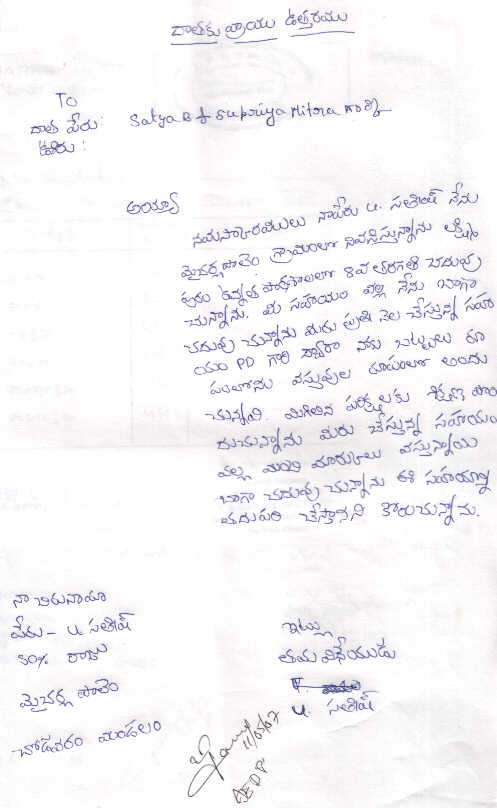 దాతకు వ్రాయు ఉత్తరము
To
దాత పేరు: Satya B & Supriya Mitra గార్కి
ఊరు:
అయ్యా
నమస్కారములు నాపేరు u. సతీష్ నేను
గ్రామంలో నివసిస్తున్నాను లక్ష్మీ
పురం ఉన్నత పాఠశాలలో 8వ తరగతి చదువు
చున్నాను. మీ సహాయం వల్ల నేను బాగా
చదువు చున్నాను మీరు ప్రతి నెల చేస్తున్న సహా
యం PD గారి ద్వారా నాకు బట్టలు రూ
పంలోను వస్తువుల రూపంలో అందు
చున్నవి. మిగిలిన పరీక్షలకు శిక్షణ పొం
దుచున్నాను మీరు చేస్తున్న సహాయం
వల్ల మంచి మార్కులు వస్తున్నాయి
బాగా చదువు చున్నాను ఈ సహాయాన్ని
తదుపరి చేస్తారని కోరుచున్నాను.
నా చిరునామా
పేరు - u. సతీష్
రాజు
చోడవరం మండలం
ఇట్లు
తమ విధేయుడు
u. సతీష్
11/05/07
AEDP